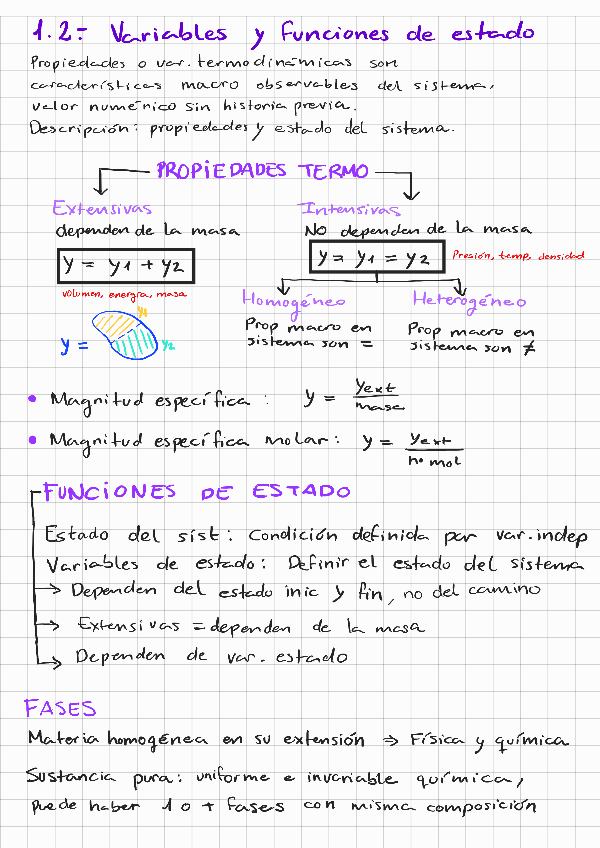 1.2.- Variables y funciones de estado
Propiedades o var. termodinámicas son
características macro observables del sistema,
valor numérico sin historia previa.
Descripción: propiedades y estado del sistema.
PROPIEDADES TERMO
Extensivas
dependen de la masa
y = y1 + y2
volumen, energía, masa
y1
y =
y2
Intensivas
NO dependen de la masa
y = y1 = y2
Presión, temp, densidad
Homogéneo
Prop macro en
sistema son =
Heterogéneo
Prop macro en
sistema son ≠
• Magnitud específica : y = yext / masa
• Magnitud específica molar: y = yext / nº mol
FUNCIONES DE ESTADO
Estado del sist: Condición definida por var. indep
Variables de estado: Definir el estado del sistema
→ Dependen del estado inic y fin, no del camino
→ Extensivas = dependen de la masa
→ Dependen de var. estado
FASES
Materia homogénea en su extensión ⇒ Física y química
Sustancia pura: uniforme e invariable química,
puede haber 1 o + fases con misma composición